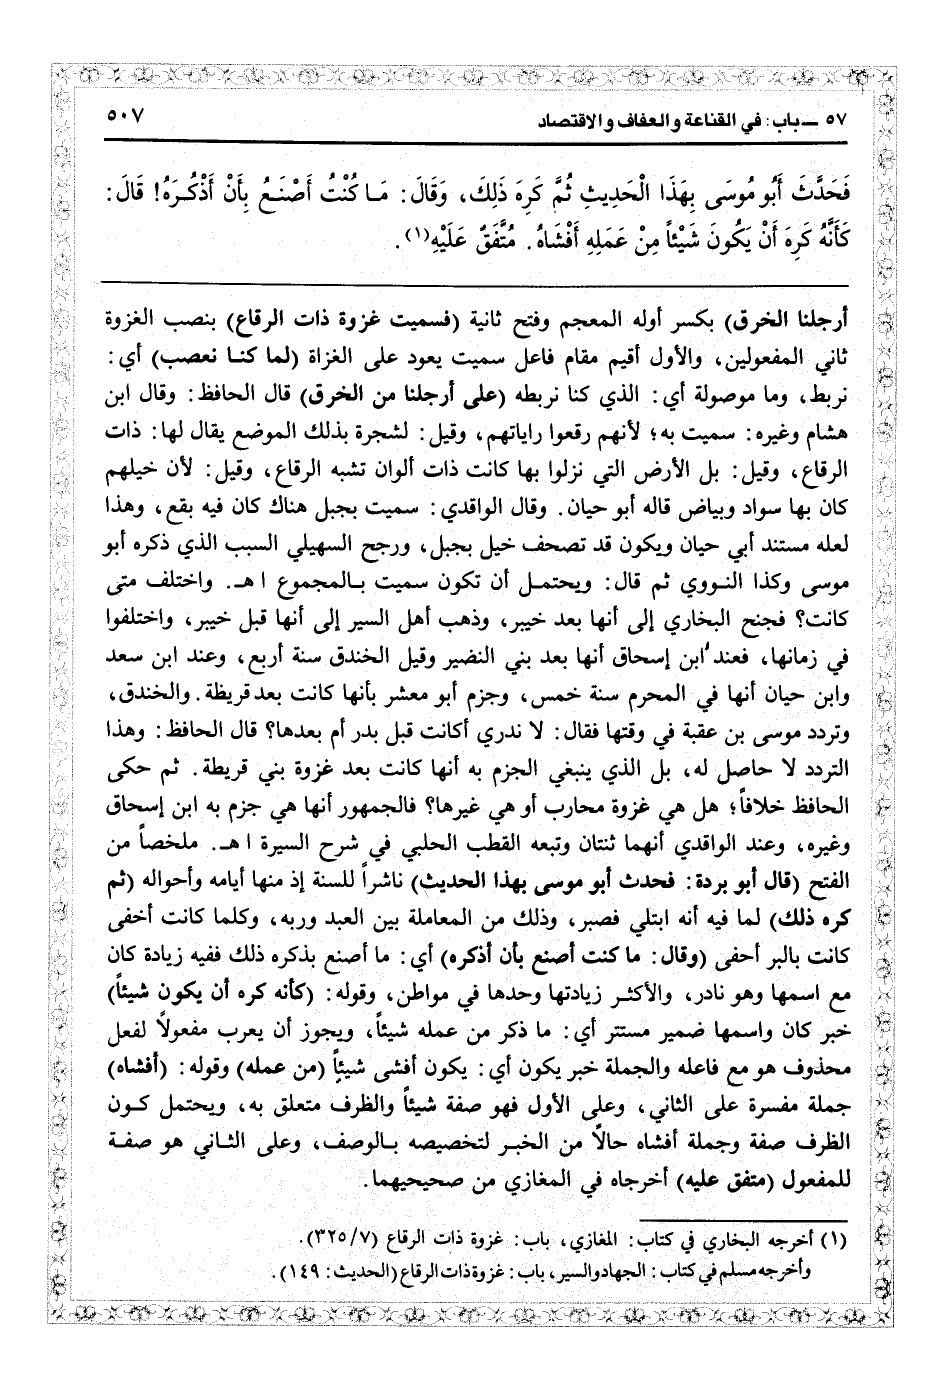 ٥٧ ــ باب: في القناعة والعفاف والاقتصاد
٥٠٧
فَحَدَّثَ أَبُو مُوسَى بِهَذَا الْحَدِيثِ ثُمَّ كَرِهَ ذَلِكَ، وَقَالَ: مَا كُنْتُ أَصْنَعُ بِأَنْ أَذْكُرَهُ! قَالَ:
كَأَنَّهُ كَرِهَ أَنْ يَكُونَ شَيْئاً مِنْ عَمَلِهِ أَفْشَاهُ. مُتَّفَقٌ عَلَيْهِ(١).
أرجلنا الخرق) بكسر أوله المعجم وفتح ثانية (فسميت غزوة ذات الرقاع) بنصب الغزوة
ثاني المفعولين، والأول أقيم مقام فاعل سميت يعود على الغزاة (لما كنا نعصب) أي:
نربط، وما موصولة أي: الذي كنا نربطه (على أرجلنا من الخرق) قال الحافظ: وقال ابن
هشام وغيره: سميت به؛ لأنهم رقعوا راياتهم، وقيل: لشجرة بذلك الموضع يقال لها: ذات
الرقاع، وقيل: بل الأرض التي نزلوا بها كانت ذات ألوان تشبه الرقاع، وقيل: لأن خيلهم
كان بها سواد وبياض قاله أبو حيان. وقال الواقدي: سميت بجبل هناك كان فيه بقع، وهذا
لعله مستند أبي حيان ويكون قد تصحف خيل بجبل، ورجح السهيلي السبب الذي ذكره أبو
موسى وكذا النووي ثم قال: ويحتمل أن تكون سميت بالمجموع ا هـ. واختلف متى
كانت؟ فجنح البخاري إلى أنها بعد خيبر، وذهب أهل السير إلى أنها قبل خيبر، واختلفوا
في زمانها، فعند ابن إسحاق أنها بعد بني النضير وقيل الخندق سنة أربع، وعند ابن سعد
وابن حيان أنها في المحرم سنة خمس، وجزم أبو معشر بأنها كانت بعد قريظة. والخندق،
وتردد موسى بن عقبة في وقتها فقال: لا ندري أكانت قبل بدر أم بعدها؟ قال الحافظ: وهذا
التردد لا حاصل له، بل الذي ينبغي الجزم به أنها كانت بعد غزوة بني قريطة. ثم حكى
الحافظ خلافاً؛ هل هي غزوة محارب أو هي غيرها؟ فالجمهور أنها هي جزم به ابن إسحاق
وغيره، وعند الواقدي أنهما ثنتان وتبعه القطب الحلبي في شرح السيرة ا هـ. ملخصاً من
الفتح (قال أبو بردة: فحدث أبو موسى بهذا الحديث) ناشراً للسنة إذ منها أيامه وأحواله (ثم
كره ذلك) لما فيه أنه ابتلي فصبر، وذلك من المعاملة بين العبد وربه، وكلما كانت أخفى
كانت بالبر أحفى (وقال: ما كنت أصنع بأن أذكره) أي: ما أصنع بذكره ذلك ففيه زيادة كان
مع اسمها وهو نادر، والأكثر زيادتها وحدها في مواطن، وقوله: (كأنه كره أن يكون شيئاً)
خبر كان واسمها ضمير مستتر أي: ما ذكر من عمله شيئاً، ويجوز أن يعرب مفعولاً لفعل
محذوف هو مع فاعله والجملة خبر يكون أي: يكون أفشى شيئاً (من عمله) وقوله: (أفشاه)
جملة مفسرة على الثاني، وعلى الأول فهو صفة شيئاً والظرف متعلق به، ويحتمل كون
الظرف صفة وجملة أفشاه حالاً من الخبر لتخصيصه بالوصف، وعلى الثاني هو صفة
للمفعول (متفق عليه) أخرجاه في المغازي من صحيحيهما.
(١) أخرجه البخاري في كتاب: المغازي، باب: غزوة ذات الرقاع (٣٢٥/٧).
وأخرجه مسلم في كتاب: الجهاد والسير، باب: غزوة ذات الرقاع (الحديث: ١٤٩).